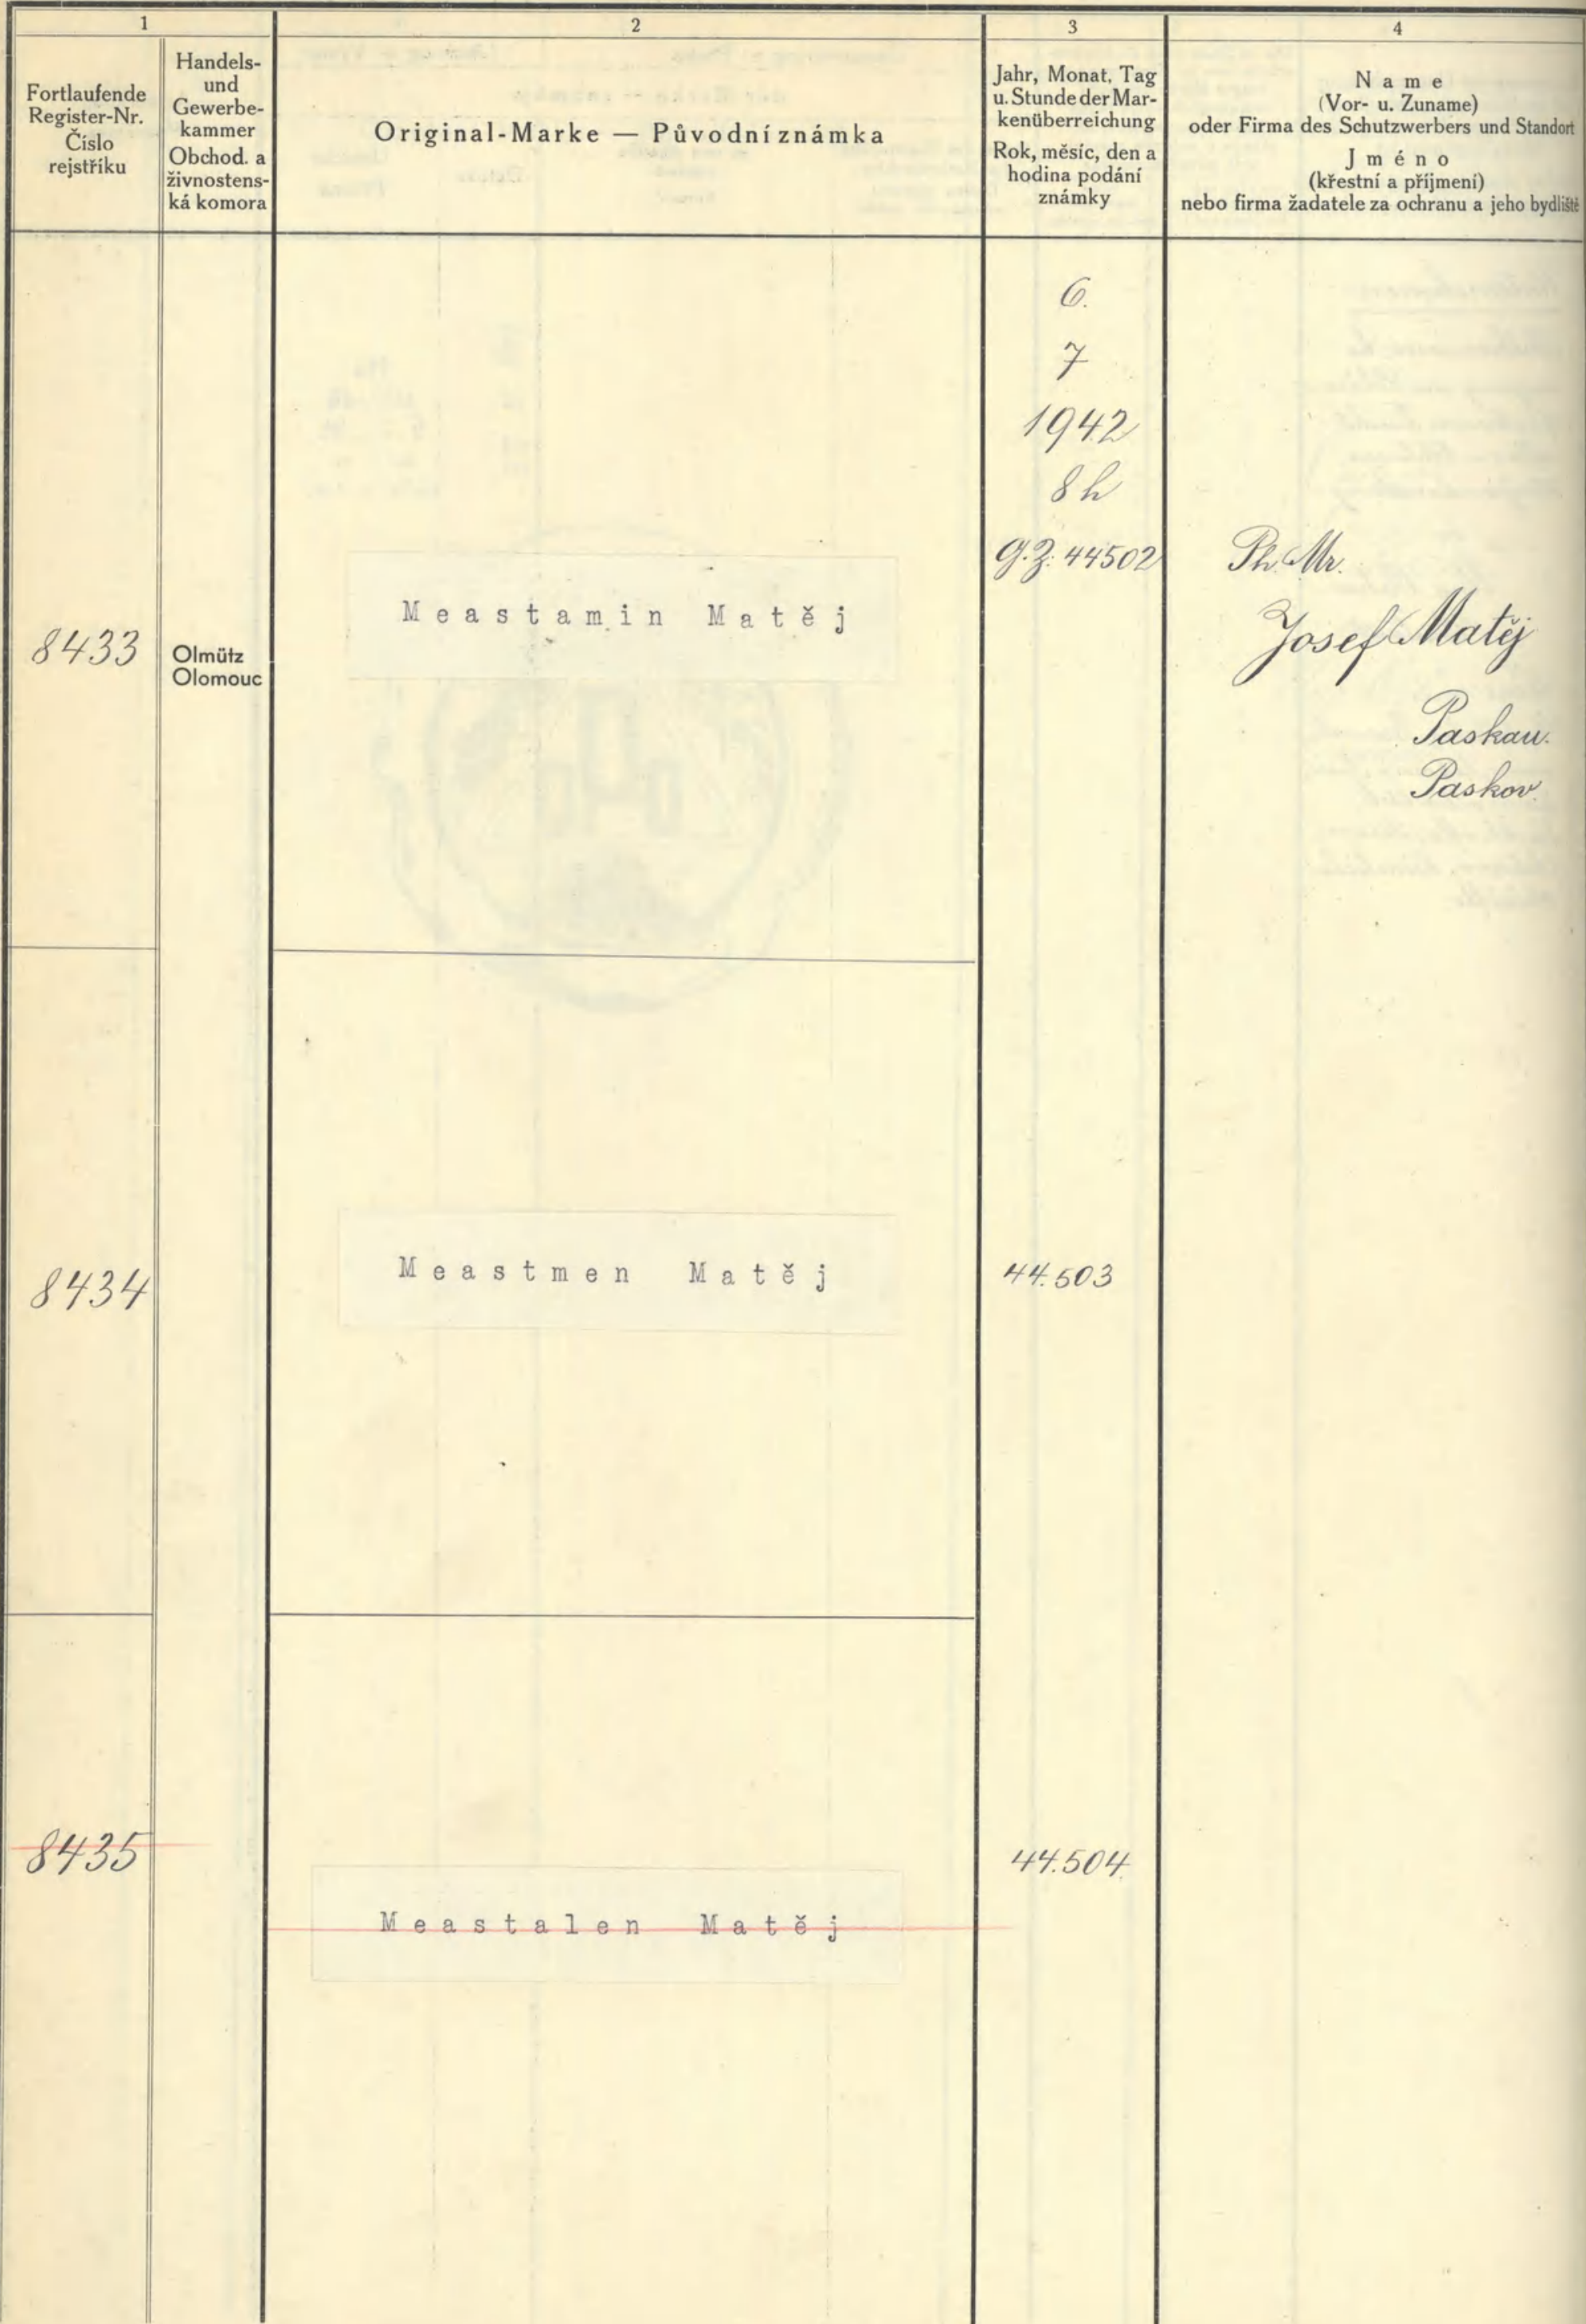 1
2
3
4
Fortlaufende
Register-Nr.
Číslo
rejstříku
Handels-
und
Gewerbe-
kammer
Obchod. a
živnostens-
ká komora
Original-Marke — Původní známka
Jahr, Monat, Tag
u. Stunde der Mar-
kenüberreichung
Rok, měsíc, den a
hodina podání
známky
Name
(Vor- u. Zuname)
oder Firma des Schutzwerbers und Standort
Jméno
(křestní a příjmení)
nebo firma žadatele za ochranu a jeho bydliště
8433
Olmütz
Olomouc
Meastamin Matěj
6.
7
1942
8 h
G.Z. 44502
Ph. Mr.
Josef Matěj
Paskau.
Paskov.
8434
Meastmen Matěj
44.503
8435
Meastalen Matěj
44.504.